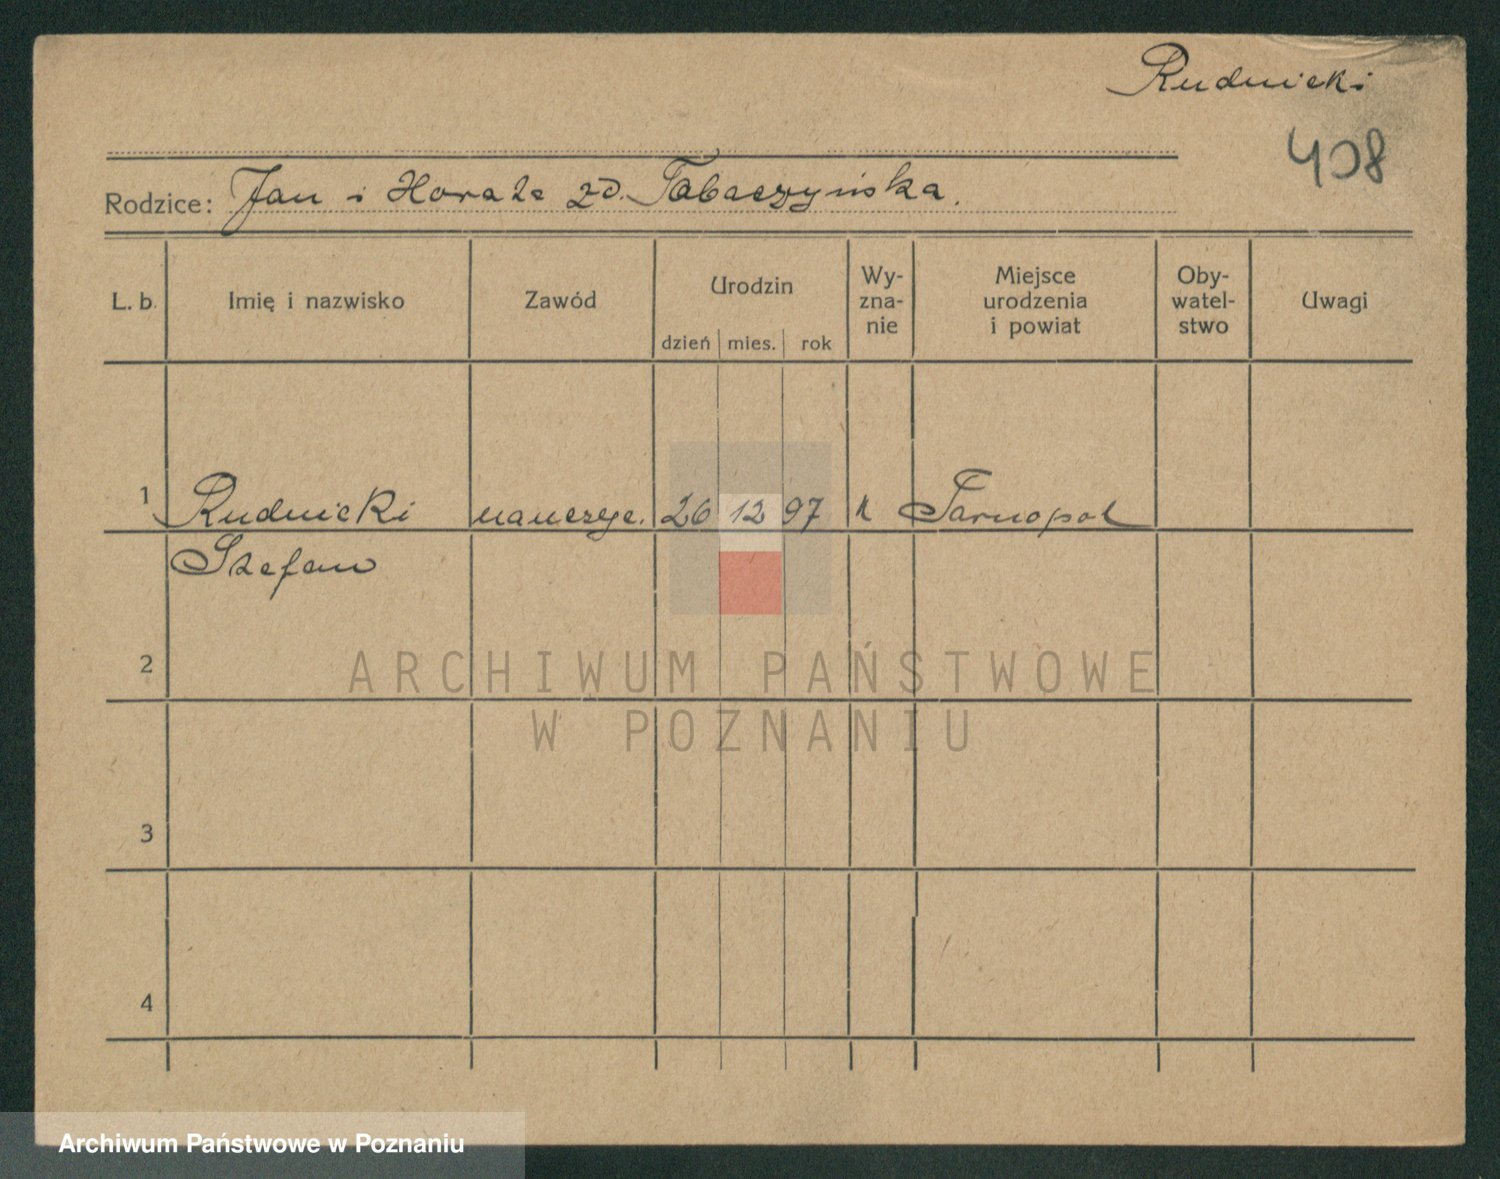 Rudnicki
408
Rodzice: Jan i zd. Tabaczyńska.
L. b. Imię i nazwisko Zawód Urodzin dzień mies. rok Wy-zna-nie Miejsce urodzenia i powiat Oby-watel-stwo Uwagi
1 Rudnicki nauczyc. 26 12 97 k Tarnopol
Stefan
2
ARCHIWUM PAŃSTWOWE
W POZNANIU
3
4
Archiwum Państwowe w Poznaniu